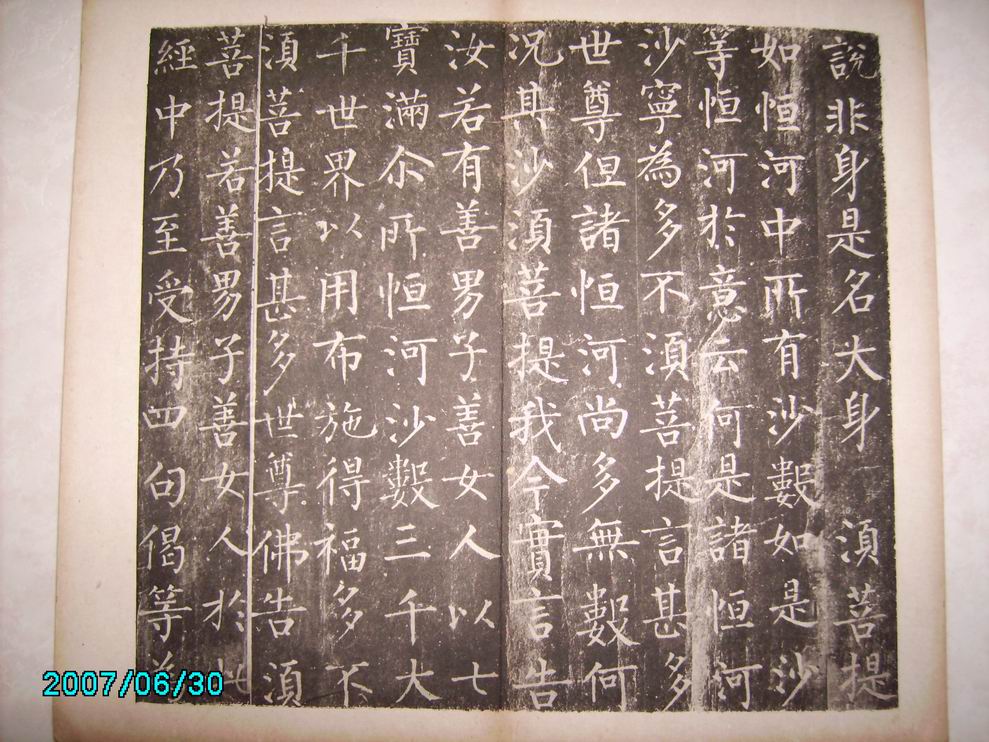 說非身是名大身須菩提
如恒河中所有沙數如是沙
等恒河於意云何是諸恒河
沙寧為多不須菩提言甚多
世尊但諸恒河尚多無數何
況其沙須菩提我今實言告
汝若有善男子善女人以七
寶滿尒所恒河沙數三千大
千世界以用布施得福多不
須菩提言甚多世尊佛告須
菩提若善男子善女人於此
經中乃至受持四句偈等為
2007/06/30